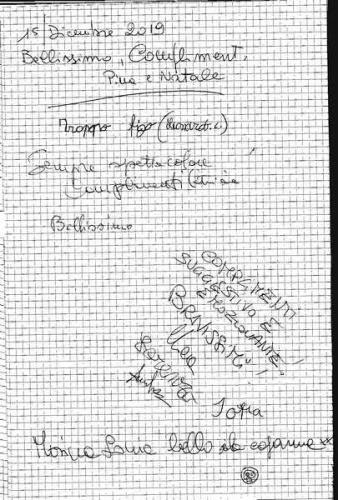 15 Dicembre 2019
Bellissimo, Compliment.
Pina e Natale
Troppo figo (Riccardo.)
Sempre spettacolare!
Complimenti
Bellissimo
COMPLIMENTI
SUGGESTIVO E
EMOZIONANTE!
BRAVISSIMI!
Lorenza
Sofia
Monica bello da